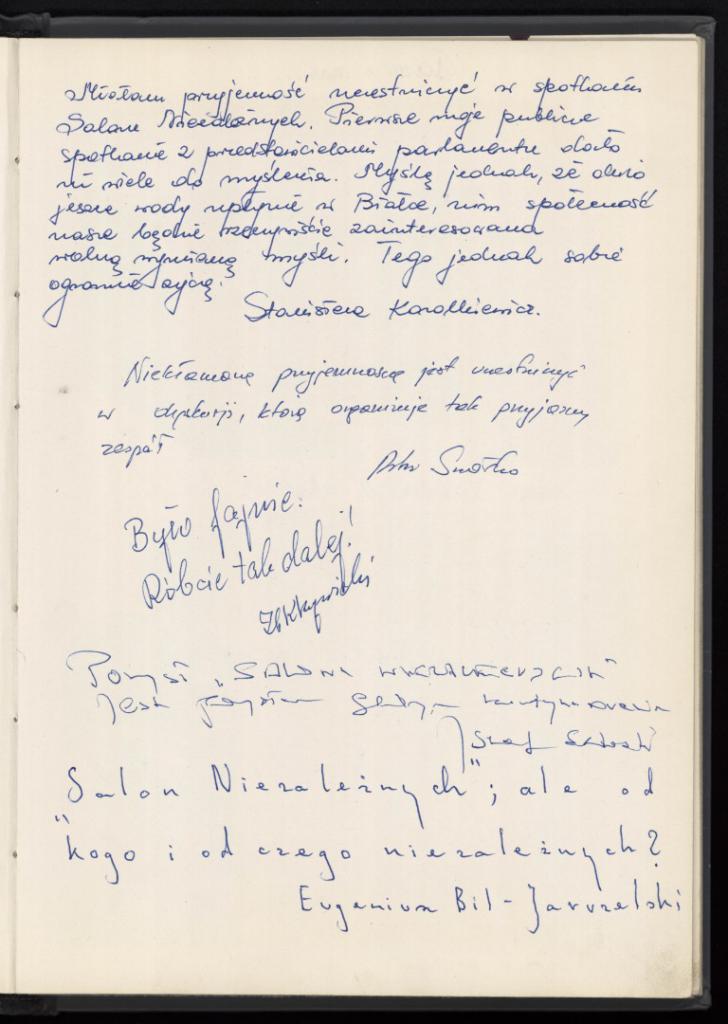 Miałam przyjemność uczestniczyć w spotkaniu
Salonu Niezależnych. Pierwsze moje publiczne
spotkanie z przedstawicielami parlamentu dało
mi wiele do myślenia. Myślę jednak, że dużo
jeszcze wody upłynie w Białce, nim społeczność
nasza będzie rzeczywiście zainteresowana
wolną wymianą myśli. Tego jednak sobie
ogromnie życzę.
Stanisława
Niekłamaną przyjemnością jest uczestniczyć
w dyskusji, którą organizuje tak przyjazny
zespół
Piotr
Było fajnie.
Róbcie tak dalej!
Pomysł „SALONU
jest
Józef
"Salon Niezależnych"; ale od
kogo i od czego niezależnych?
Eugeniusz Bil-Jaruzelski